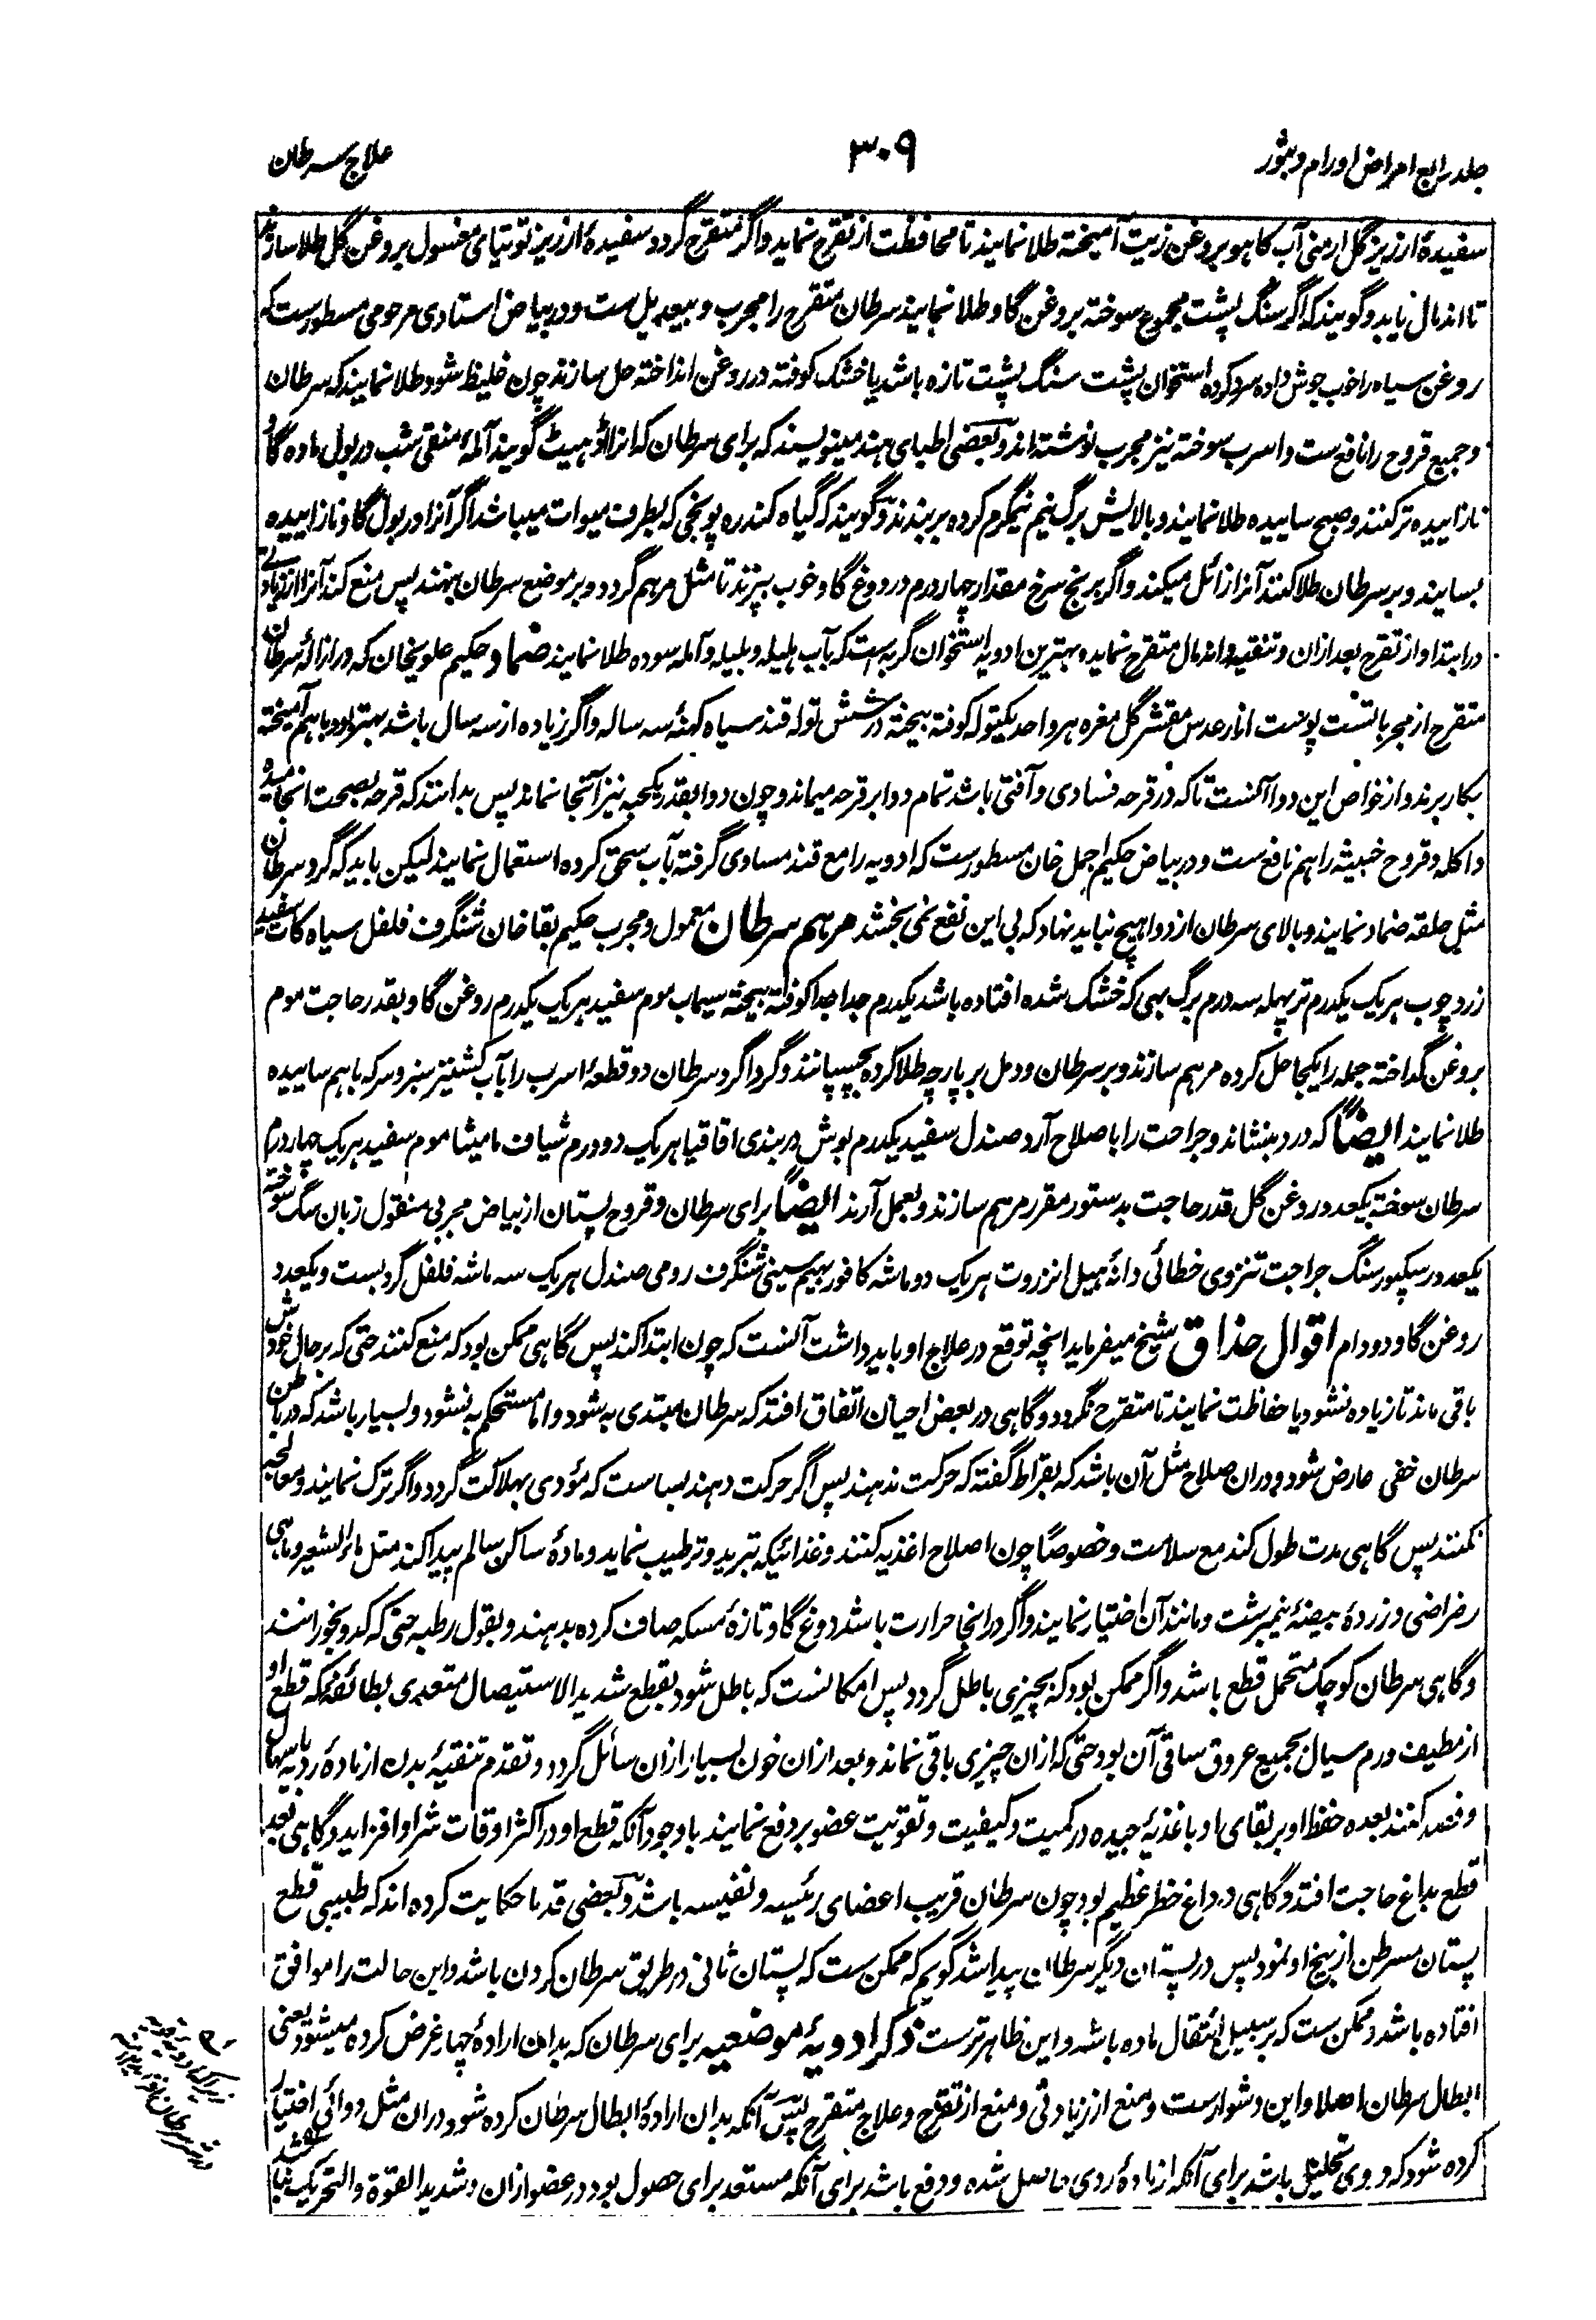 جلد رابع امراض اورام و بثور
۳۰۹
علاج سرطان
سفیدهٔ ارزیز گل ارمنی آب کاهو بروغن زیت آمیخته طلا نمایند تا محافظت از تقرح نماید و اگر متقرح گردد سفیدهٔ ارزیز توتیای مغسول بروغن گل طلا سازند
تا اندمال یابد و گویند که اگر سنگ پشت مجموع سوخته بروغن گاو طلا نمایند سرطان متقرح را مجرب و بیعدیل ست و در بیاض استادی مرحومی مسطورست که
روغن سیاه را خوب جوش داده سرد کرده استخوان پشت سنگ پشت تازه باشد یا خشک کوفته در روغن انداخته حل سازند چون غلیظ شود طلا نمایند که سرطان
و جمیع قروح را نافع ست و اسرب سوخته نیز مجرب نوشته اند و بعضی اطبای هند مینویسند که برای سرطان که انرا اڈھیٹ گویند آملهٔ منقی شب در بول ماده گاو
نازاییده تر کنند و صبح ساییده طلا نمایند و بالایش برگ نیم نیمگرم کرده بربندند و گویند که گیاه کندره پونچی که بطرف میوات میباشد اگر آنرا در بول گاو نازاییده
بسایند و بر سرطان طلا کنند آنرا زائل میکند و اگر برنج سرخ مقدار چهار درم در دوغ گاو خوب بپزند تا مثل مرهم گردد و بر موضع سرطان بنهند پس منع کند آنرا از زیادتی
در ابتدا و از تقرح بعد ازان و تنقیه و اندمال متقرح نماید و بهترین ادویه استخوان گربه است که بآب هلیله و بلیله و آمله سوده طلا نمایند ضماد حکیم علویخان که در ازالهٔ سرطان
متقرح از مجرباتست پوست انار عدس مقشر گل مغره هر واحد یکتوله کوفته بیخته در شش توله قند سیاه کهنهٔ سه ساله و اگر زیاده از سه سال باشد بهتر بود باهم آمیخته
بکار برند و از خواص این دوا آنست تا که در قرحه فسادی و آفتی باشد تمام دوا بر قرحه میماند و چون دوا بقدر یکحبه نیز آنجا نماند پس بدانند که قرحه بصحت انجامیده
و اکله و قروح خبیثه را هم نافع ست و در بیاض حکیم اجمل خان مسطورست که ادویه را مع قند مساوی گرفته بآب سحق کرده استعمال نمایند لیکن باید که گرد سرطان
مثل حلقه ضماد نمایند و بالای سرطان از دوا هیچ نباید نهاد که بی این نفع نمی بخشد مرهم سرطان معمول و مجرب حکیم بقا خان شنگرف فلفل سیاه کات سفید
زرد چوب هر یک یکدرم تر پهله سه درم برگ بهی که خشک شده افتاده باشد یکدرم جدا جدا کوفته بیخته سیماب موم سفید هر یک یکدرم روغن گاو بقدر حاجت موم
بروغن گداخته جمله را یکجا حل کرده مرهم سازند و بر سرطان و دمل بر پارچه طلا کرده بچسپانند و گرداگرد سرطان دو قطعهٔ اسرب را بآب کشنیز سبز و سرکه باهم ساییده
طلا نمایند ایضاً که درد بنشاند و جراحت را باصلاح آرد صندل سفید یکدرم بوش دربندی اقاقیا هر یک دو درم شیاف مامیثا موم سفید هر یک چهار درم
سرطان سوخته یکعدد روغن گل قدر حاجت بدستور مقرر مرهم سازند و بعمل آرند ایضاً برای سرطان و قروح پستان از بیاض مجربی منقول زبان سگ سوخته
یکعدد رسکپور سنگ جراحت تنزوی خطائی دانهٔ هیل انزروت هر یک دو ماشه کافور بهیم سینی شنگرف رومی صندل هر یک سه ماشه فلفل گرد بست و یکعدد
روغن گاو دو دام اقوال حذاق شیخ میفرماید انچه توقع در علاج او باید داشت آنست که چون ابتدا کند پس گاهی ممکن بود که منع کنند حتی که بر حال خودش
باقی ماند تا زیاده نشود یا حفاظت نمایند تا متقرح نگردد و گاهی در بعض احیان اتفاق افتد که سرطان مبتدی به شود و اما مستحکم به نشود و بسیار باشد که در باطن
سرطان خفی عارض شود و دران صلاح مثل آن باشد که بقراط گفته که حرکت ندهند پس اگر حرکت دهند بساست که مؤدی بهلاکت گردد و اگر ترک نمایند و معالجه
نکنند پس گاهی مدت طول کند مع سلامت و خصوصاً چون اصلاح اغذیه کنند و غذائیکه تبرید و ترطیب نماید و مادهٔ ساکن سالم پیدا کند مثل ماء الشعیر و ماهی
رضراضی و زردهٔ بیضهٔ نیمبرشت و مانند آن اختیار نمایند و اگر در انجا حرارت باشد دوغ گاو تازهٔ مسکه صاف کرده بدهند و بقول رطبه حتی که کدو بخورانند
و گاهی سرطان کوچک متحمل قطع باشد و اگر ممکن بود که بچیزی باطل گردد پس امکانست که باطل شود بقطع شدید الاستیصال متعدی بطائفه که قطع او
از مطیف ورم سیال بجمیع عروق ساقی آن بود حتی که ازان چیزی باقی نماند و بعد ازان خون بسیار ازان سائل گردد و تقدم تنقیهٔ بدن از مادهٔ ردیه باسهال
و فصد کنند بعده حفظ او بر بقای او باغذیهٔ جیده در کمیت و کیفیت و تقویت عضو بر دفع نمایند باوجود آنکه قطع او در اکثر اوقات شر او افزاید و گاهی بعد
قطع بداغ حاجت افتد و گاهی در داغ خطر عظیم بود چون سرطان قریب اعضای رئیسه و نفیسه باشد و بعضی قدما حکایت کرده اند که طبیبی قطع
پستان مسرطن از بیخ او نمود پس در پستان دیگر سرطان پیدا شد گویم که ممکن ست که پستان ثانی در طریق سرطان کردن باشد و این حالت را موافق
افتاده باشد و ممکن ست که بر سبیل انتقال ماده باشد و این ظاهر ترست ذکر ادویهٔ موضعیه برای سرطان که بدان ارادهٔ چهار غرض کرده میشود یعنی
ابطال سرطان اصلا و این دشوارست و منع از زیادتی و منع از تقرح و علاج متقرح پس آنکه بدان ارادهٔ ابطال سرطان کرده شود دران مثل دوائی اختیار
کرده شود که دروی تحلیل باشد برای آنکه از مادهٔ ردی حاصل شده و دفع باشد برای آنکه مستعد برای حصول بود در عضو ازان و شدید القوة و التحریک نباشد